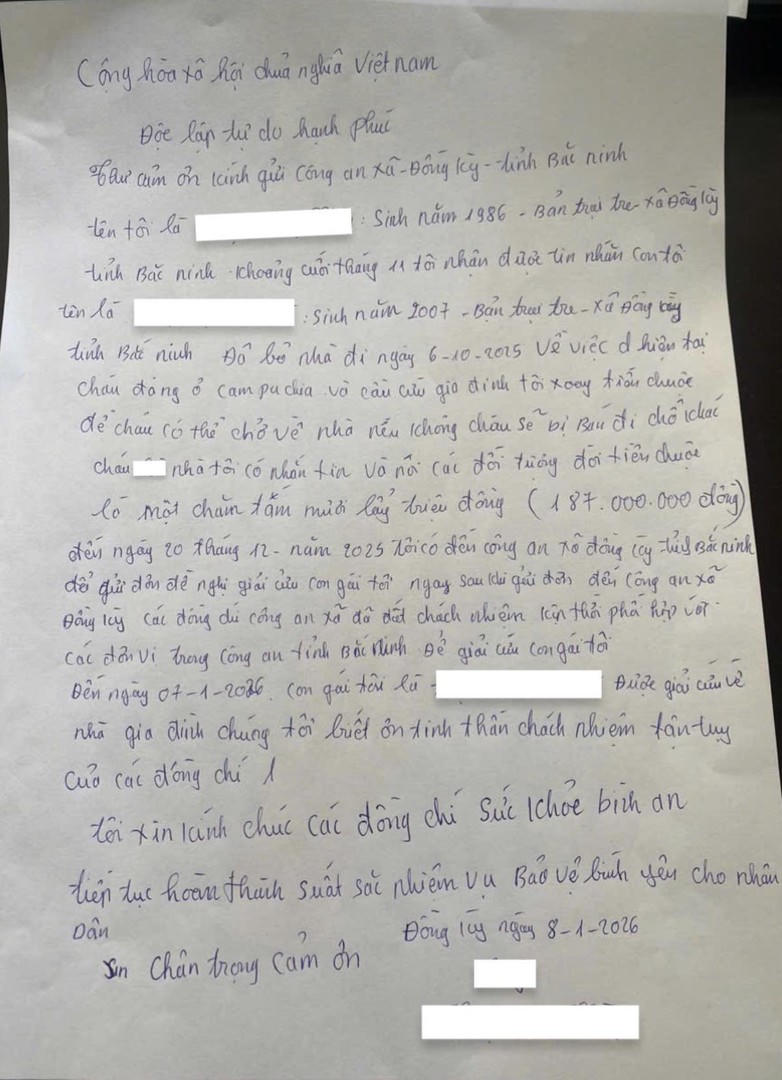 Cộng hòa xã hội chủa nghĩa Việt nam
Độc lập tự do hạnh phúc
Thư cảm ơn kính gửi Công an xã - Đồng Kỳ - tỉnh Bắc ninh
tên tôi là : Sinh năm 1986 - Bản trại tre - xã Đồng Kỳ
tỉnh Bắc ninh. Khoảng cuối tháng 11 tôi nhận được tin nhắn con tôi
tên là : Sinh năm 2007 - Bản trại tre - xã Đồng Kỳ
tỉnh Bắc ninh Đã bỏ nhà đi ngày 6-10-2025 Về việc hiện tại
cháu đang ở campuchia và cầu cứu gia đình tôi xoay tiền chuộc
để cháu có thể chở về nhà nếu không cháu sẽ bị Bán đi chỗ khác
cháu nhà tôi có nhắn tin và nói các đối tượng đòi tiền chuộc
là một chăm tám mươi bẩy triệu đồng (187.000.000 đồng)
đến ngày 20 tháng 12 - năm 2025 tôi có đến công an xã đồng kỳ tỉnh Bắc ninh
để gửi đơn đề nghị giải cứu con gái tôi ngay sau khi gửi đơn đến Công an xã
Đồng Kỳ các đồng chí công an xã đã rất chách nhiệm kịp thời phối hợp với
các đơn vị trong Công an tỉnh Bắc Ninh Để giải cứu con gái tôi
Đến ngày 07-1-2026. con gái tôi là Được giải cứu về
nhà gia đình chúng tôi biết ơn tinh thần chách nhiệm tận tuy
của các đồng chí
tôi xin kính chúc các đồng chí sức khỏe bình an
tiếp tục hoàn thành suất sắc nhiệm vụ Bảo vệ bình yên cho nhân
Dân Đồng Kỳ ngày 8-1-2026
Xin Chân trọng cảm ơn